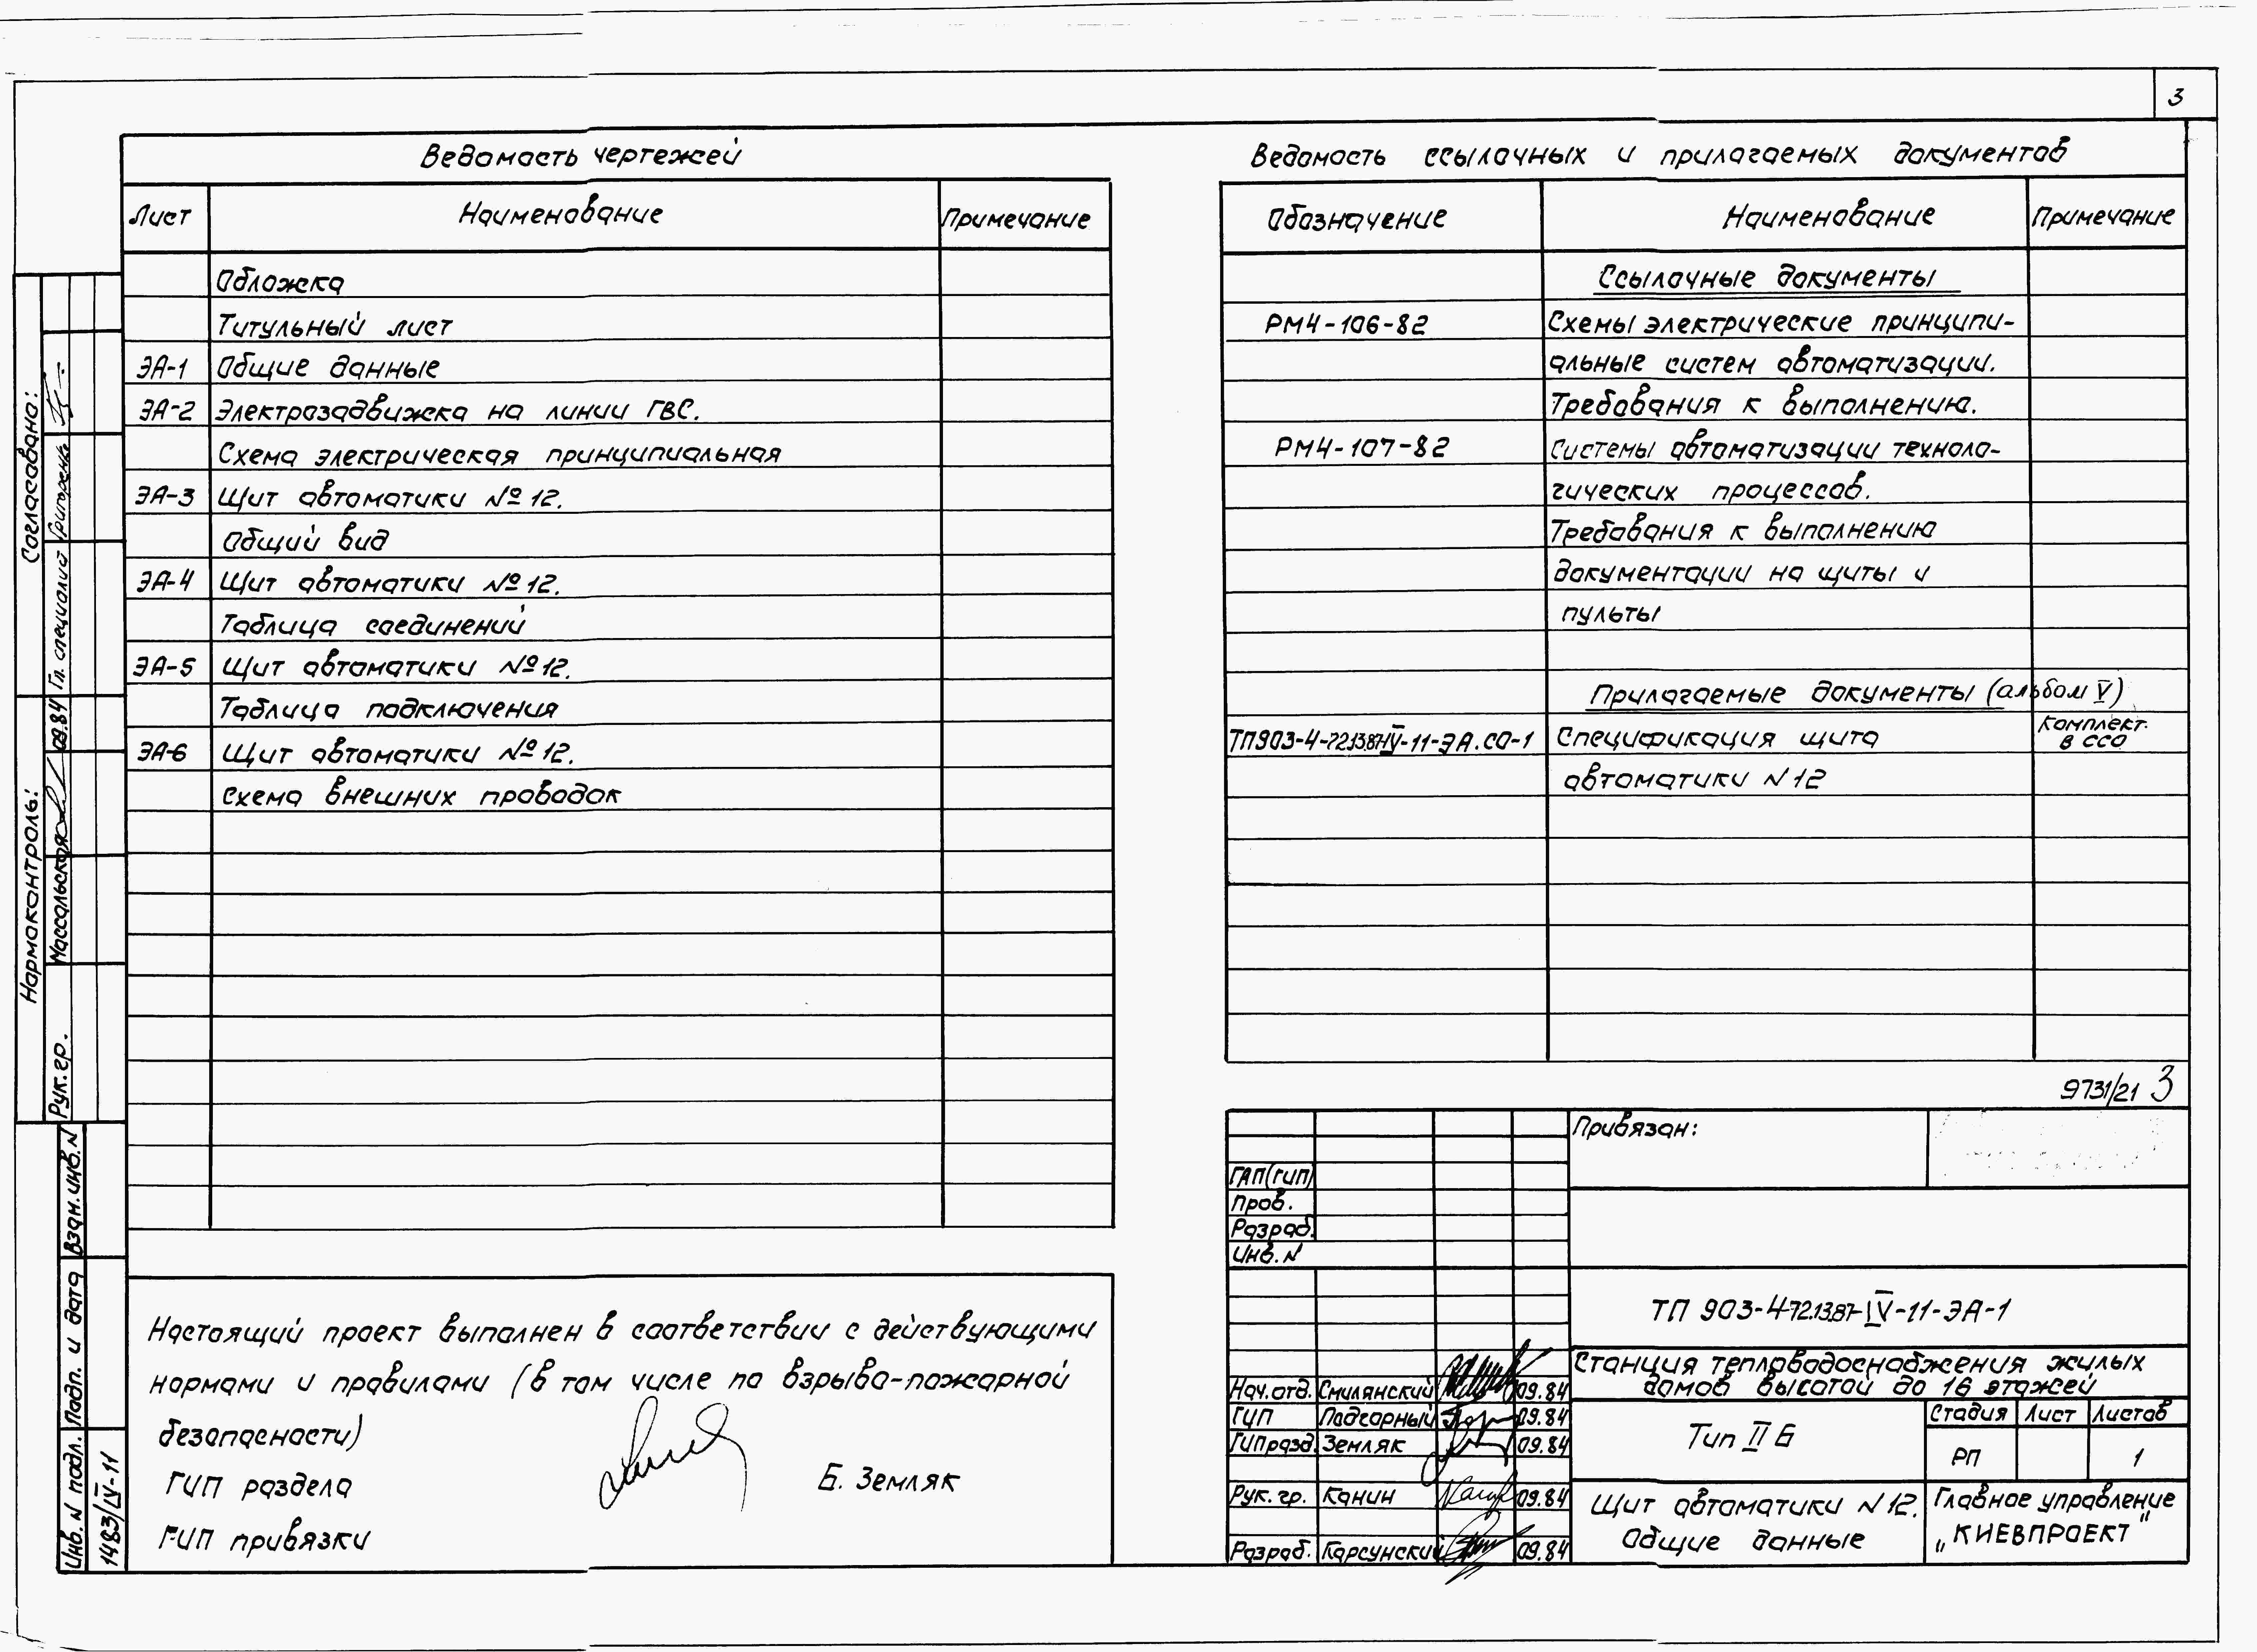 3
Ведомость чертежей
Лист Наименование Примечание
Обложка
Титульный лист
ЭА-1 Общие данные
ЭА-2 Электрозадвижка на линии ГВС.
Схема электрическая принципиальная
ЭА-3 Щит автоматики №12.
Общий вид
ЭА-4 Щит автоматики №12.
Таблица соединений
ЭА-5 Щит автоматики №12.
Таблица подключения
ЭА-6 Щит автоматики №12.
схема внешних проводок
Ведомость ссылочных и прилагаемых документов
Обозначение Наименование Примечание
Ссылочные документы
РМ4-106-82 Схемы электрические принципи-
альные систем автоматизации.
Требования к выполнению.
РМ4-107-82 Системы автоматизации техноло-
гических процессов.
Требования к выполнению
документации на щиты и
пульты
Прилагаемые документы (альбом V)
ТП903-4-72.13.87-IV-11-ЭА.СО-1 Спецификация щита комплект.
в ССО
автоматики N12
9731/21 3
Настоящий проект выполнен в соответствии с действующими
нормами и правилами (в том числе по взрыво-пожарной
безопасности)
ГИП раздела Б. Земляк
ГИП привязки
Привязан:
ГАП(ГИП)
Пров.
Разраб.
Инв. N
ТП 903-4-72.13.87-IV-11-ЭА-1
Станция тепловодоснабжения жилых
домов высотой до 16 этажей
Нач. отд. Смилянский 09.84
ГИП Подгорный 09.84
ГИП разд. Земляк 09.84
Рук. гр. Канин 09.84
Разраб. Карсунский 09.84
Тип II Б
Стадия Лист Листов
РП 1
Щит автоматики N12.
Общие данные
Главное управление
„КИЕВПРОЕКТ"
Согласовано:
Гл. специалист Григоренко
Нормоконтроль:
Рук. гр. Массальская 09.84
Взан. инв. N
Подп. и дата
Инв. N подл.
1483/IV-11